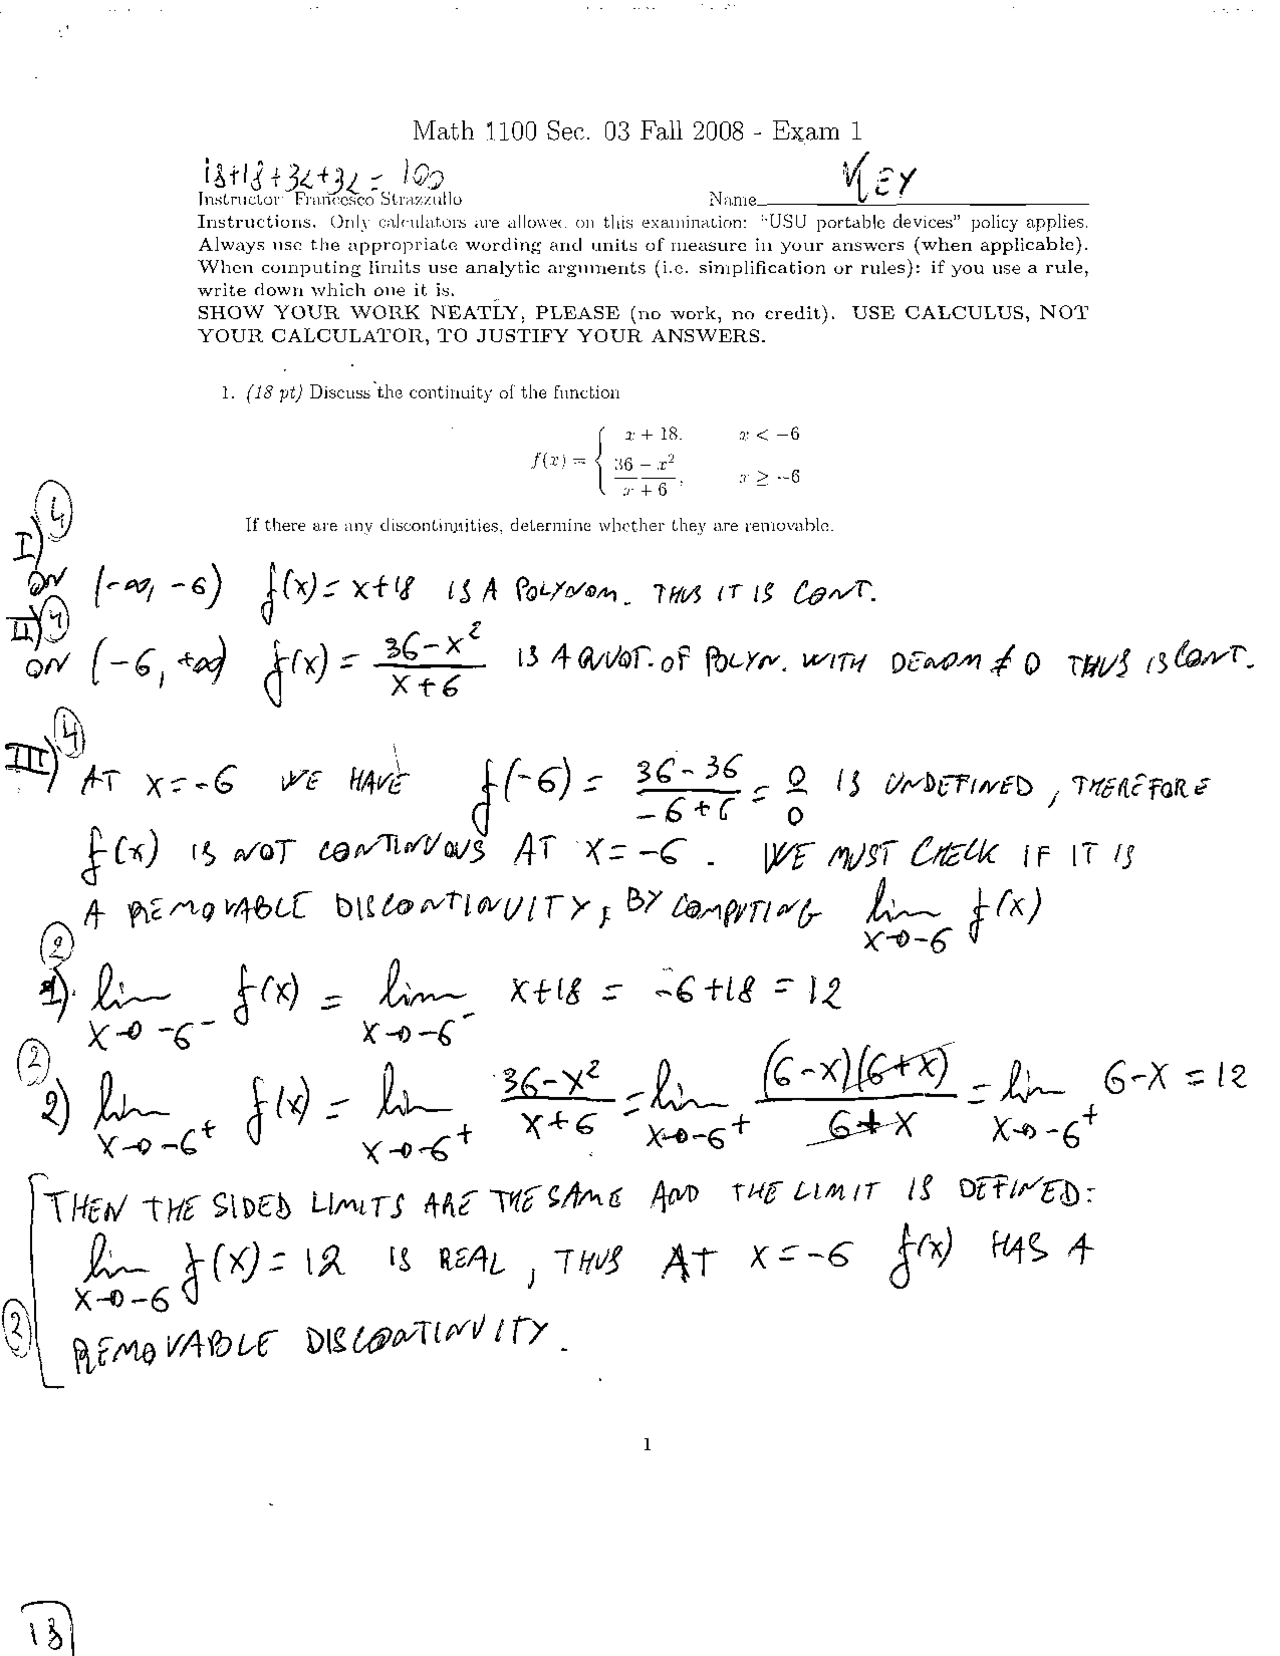 Math 1100 Sec. 03 Fall 2008 - Exam 1
18+18+32+32 = 100
KEY
Instructor: Francesco Strazzullo Name
Instructions. Only calculators are allowed on this examination: "USU portable devices" policy applies.
Always use the appropriate wording and units of measure in your answers (when applicable).
When computing limits use analytic arguments (i.e. simplification or rules): if you use a rule,
write down which one it is.
SHOW YOUR WORK NEATLY, PLEASE (no work, no credit). USE CALCULUS, NOT
YOUR CALCULATOR, TO JUSTIFY YOUR ANSWERS.
1. (18 pt) Discuss the continuity of the function
f(x) = { x + 18, x < -6
36 - x² / x + 6, x ≥ -6
If there are any discontinuities, determine whether they are removable.
I) 4
ON (-∞, -6) f(x) = x+18 IS A POLYNOM. THUS IT IS CONT.
II) 4
ON (-6, +∞) f(x) = 36-x² / x+6 IS A QUOT. OF POLYN. WITH DENOM ≠ 0 THUS IS CONT.
III) 4
AT x = -6 WE HAVE f(-6) = 36-36 / -6+6 = 0/0 IS UNDEFINED, THEREFORE
f(x) IS NOT CONTINUOUS AT x = -6. WE MUST CHECK IF IT IS
A REMOVABLE DISCONTINUITY, BY COMPUTING lim x→-6 f(x)
2
1) lim x→-6⁻ f(x) = lim x→-6⁻ x+18 = -6+18 = 12
2
2) lim x→-6⁺ f(x) = lim x→-6⁺ 36-x² / x+6 = lim x→-6⁺ (6-x)(6+x) / 6+x = lim x→-6⁺ 6-x = 12
THEN THE SIDED LIMITS ARE THE SAME AND THE LIMIT IS DEFINED:
lim x→-6 f(x) = 12 IS REAL, THUS AT x = -6 f(x) HAS A
2 REMOVABLE DISCONTINUITY.
1
18